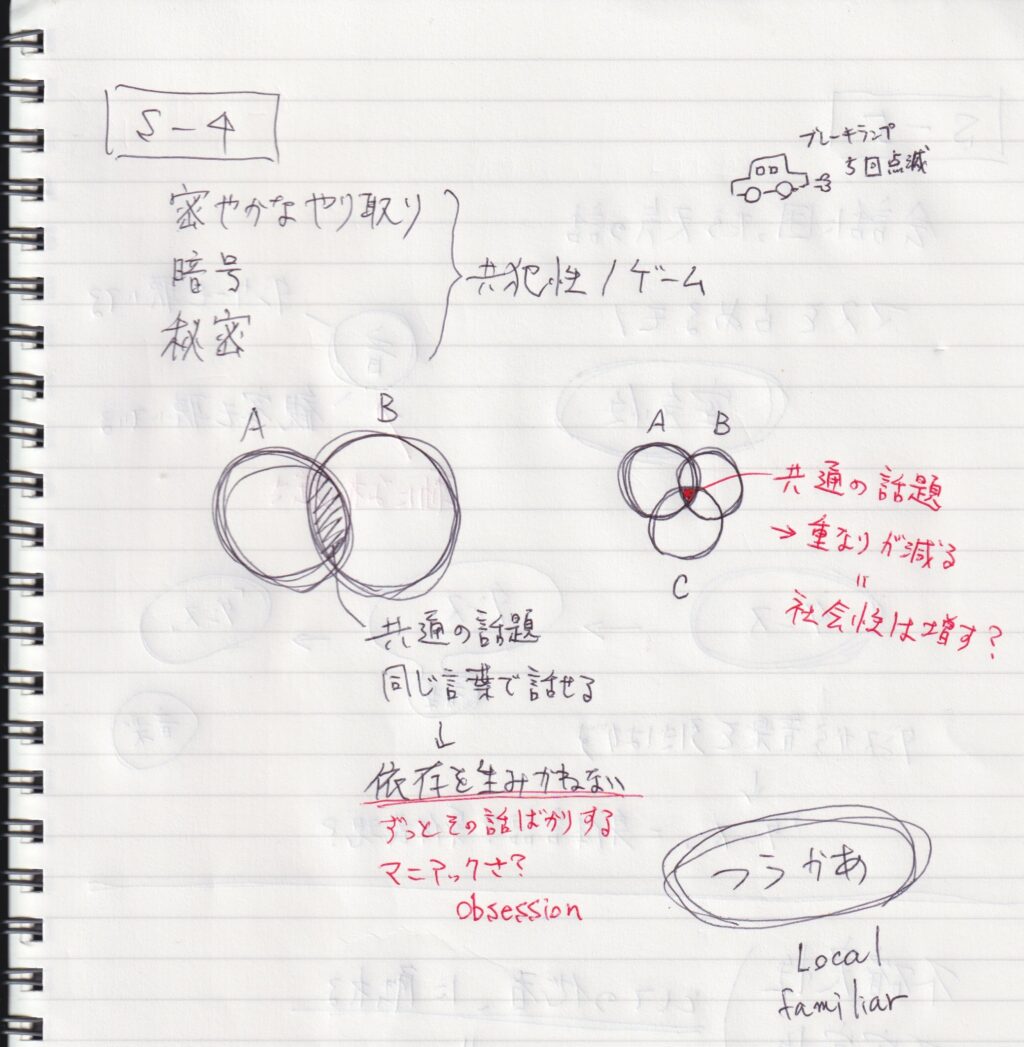 S-4
ブレーキランプ
5回点滅
密やかなやり取り
暗号
秘密
共犯性/ゲーム
A
B
共通の話題
同じ言葉で話せる
↓
依存を生みかねない
ずっとその話ばかりする
マニアックさ?
obsession
A
B
C
共通の話題
→ 重なりが減る
=
社会性は増す?
つうかあ
Local
familiar